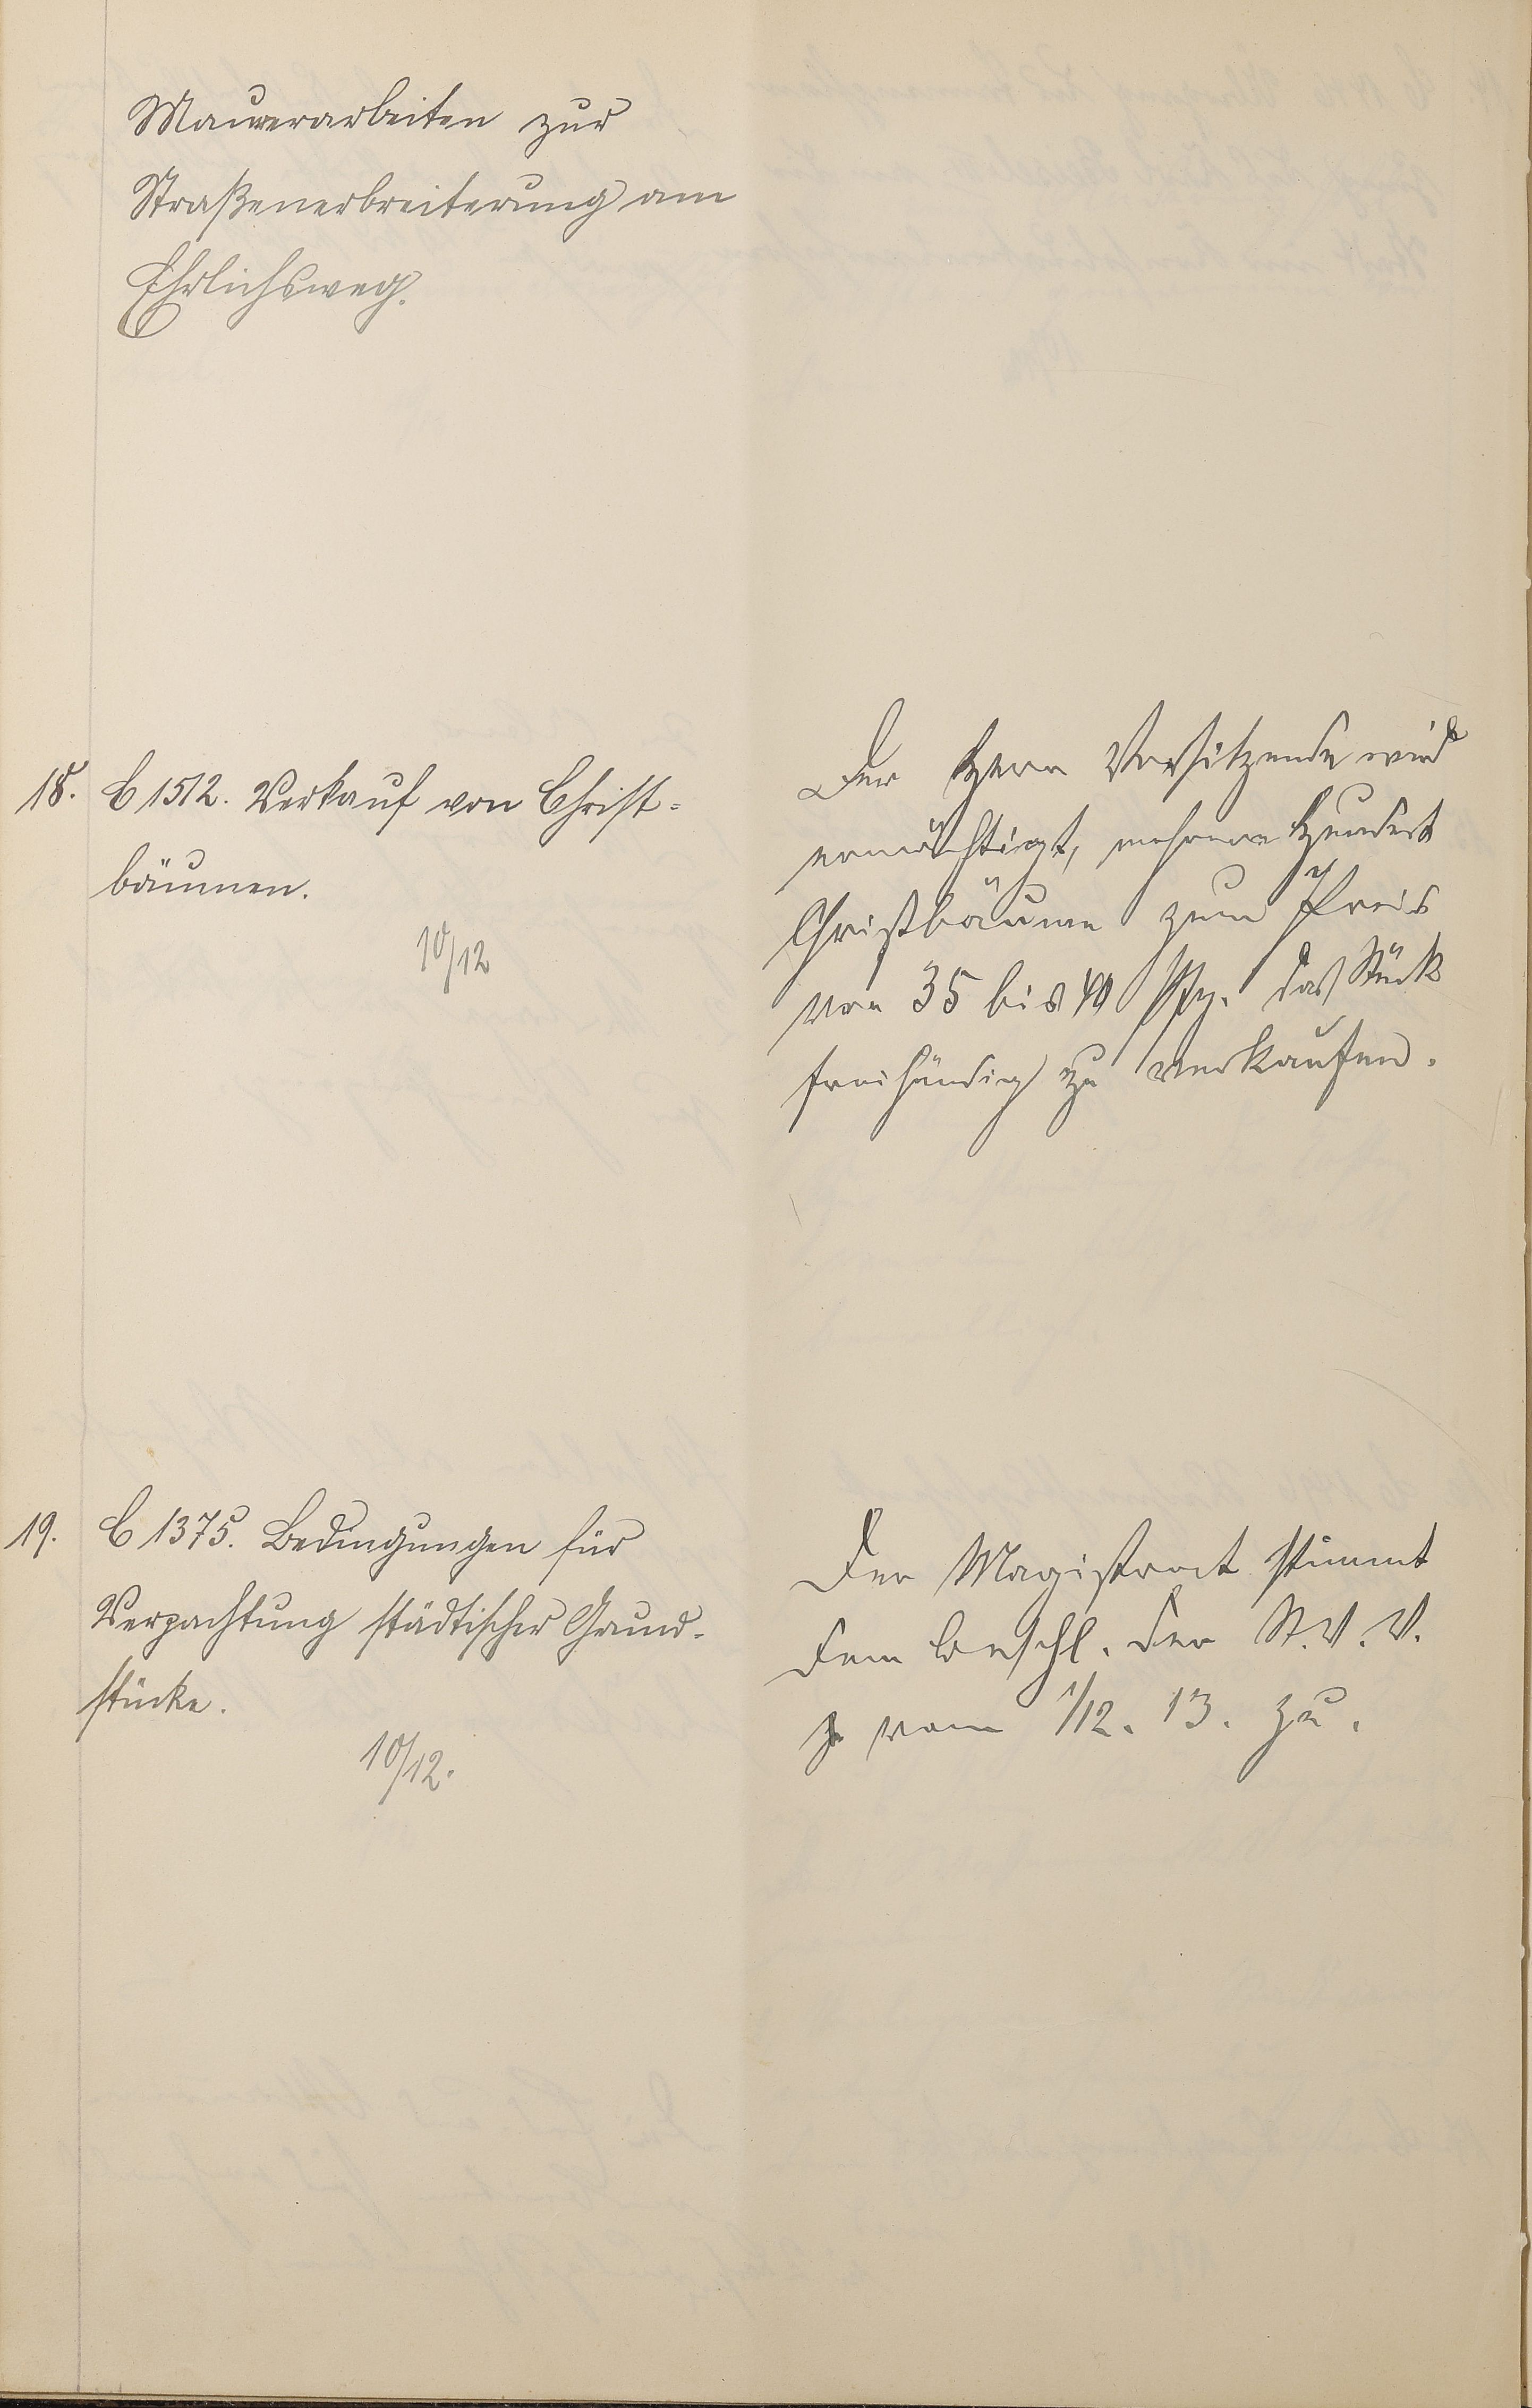 Maurerarbeiten zur
Straßenerbreiterung am
Ehrlichsweg.
18. C 1512. Verkauf von Christ-
bäumen.
10/12
Der Herr Vorsitzende wird
ermächtigt, mehrere Hundert
Christbäume zum Preis
von 35 bis 40 Pfg. das Stück
freihändig zu verkaufen.
19. C 1375. Bedingungen für
Verpachtung städtischer Grund-
stücke.
10/12.
Der Magistrat stimmt
dem Beschl. der St. V. V.
vom 1/12. 13. zu.